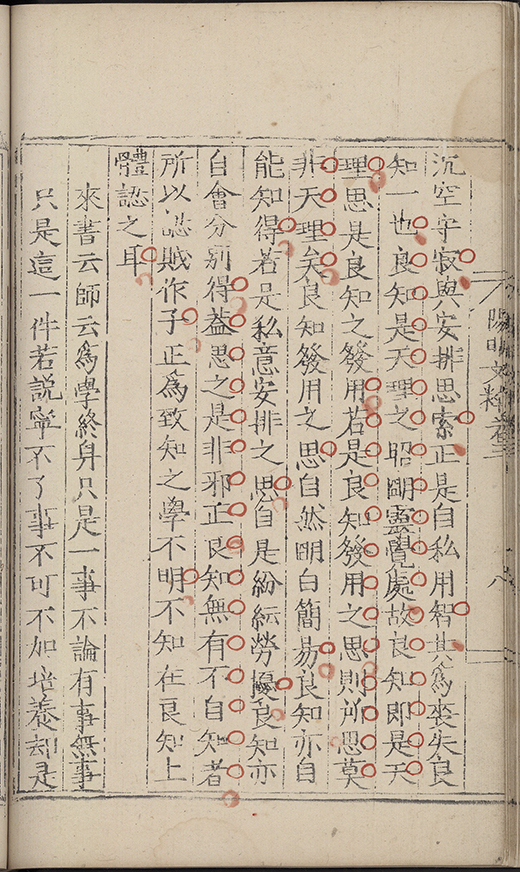 陽明文粹卷三
八
沉空守寂與安排思索正是自私用智其爲喪失良
知一也良知是天理之昭明靈覺處故良知即是天
理思是良知之發用若是良知發用之思則所思莫
非天理矣良知發用之思自然明白簡易良知亦自
能知得若是私意安排之思自是紛紜勞擾良知亦
自會分別得蓋思之是非邪正良知無有不自知者
所以認賊作子正爲致知之學不明不知在良知上
體認之耳
來書云師云爲學終身只是一事不論有事無事
只是這一件若説寧不了事不可不加培養却是